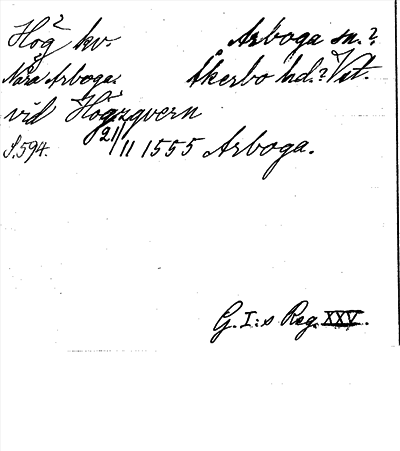 Hög² kv. Arboga sn.?
Nära Arboga. Åkerbo hd.? Vst.
vid Högzqvern
S.594. 21/11 1555 Arboga.
G. I:s Reg. XXV.